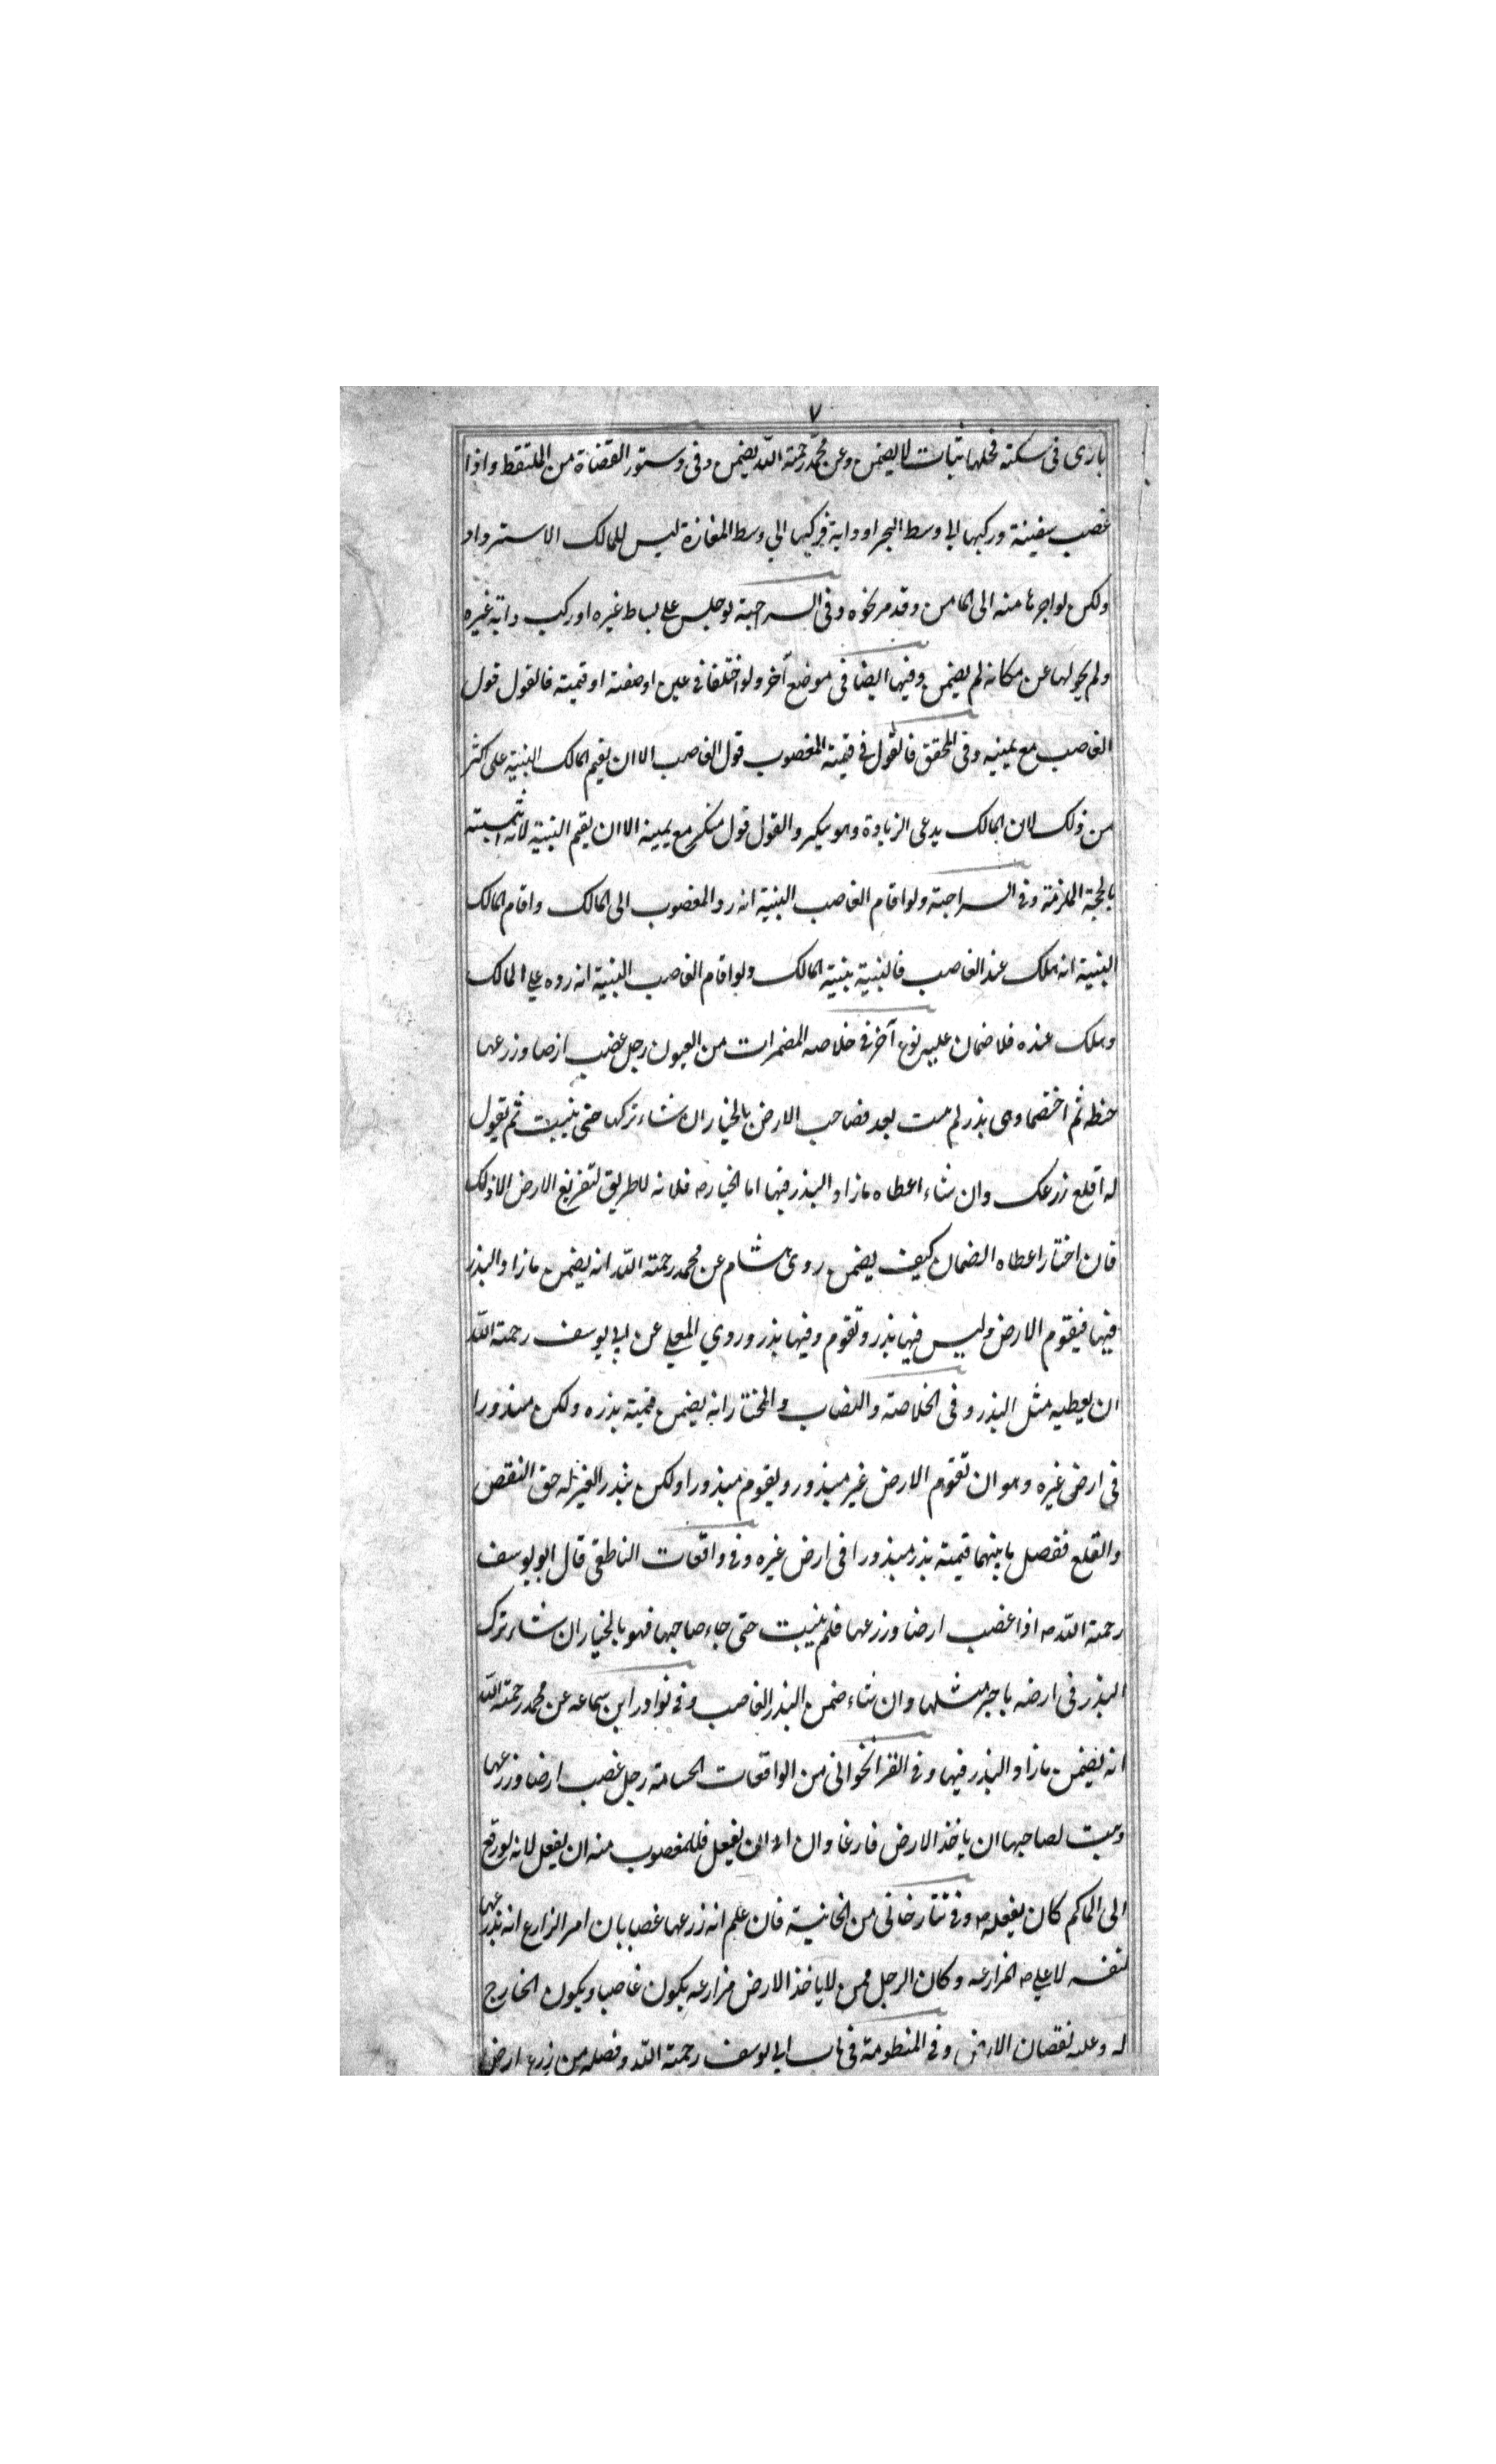 ٧
بازى فى سكته فحلها ثبات لا يضمن وعن محمد رحمة الله يضمن وفى دستور القضاة من الملتقط واذا
غصب سفينة وركبها الى وسط البحر او دابة فركبها الى وسط المفازة ليس للمالك الاسترداد
ولكن يواجرها منه الى المامن وقد مر نحوه وفى السراجية لو جلس على بساط غيره او ركب دابة غيره
ولم يحولها عن مكانه لم يضمن وفيها ايضا فى موضع آخر ولو اختلفا فى عين او صفته او قيمته فالقول قول
الغاصب مع يمينه وفى المحقق فالقول فى قيمة المغصوب قول الغاصب الا ان يقيم المالك البينة على اكثر
من ذلك لان المالك يدعى الزيادة وهو ينكر والقول قول منكر مع يمينه الا ان يقيم البينة لانه اثبته
بالحجة الملزمة وفى السراجية ولو اقام الغاصب البينة انه رد المغصوب الى المالك واقام المالك
البينة انه هلك عند الغاصب فالبينة بينة المالك ولو اقام الغاصب البينة انه رده على المالك
وهلك عنده فلا ضمان عليه نوع آخر فى خلاصه المضمرات من العيون رجل غصب ارضا وزرعها
حنطه ثم اختصما وهى بذر لم ينبت بعد فصاحب الارض بالخيار ان شاء تركها حتى ينبت ثم يقول
له اقلع زرعك وان شاء اعطاه ما زاد البذر فيها اما الخيار فلانه لا طريق لتفريغ الارض الا ذلك
فان اختار اعطاه الضمان كيف يضمن روى هشام عن محمد رحمة الله انه يضمن ما زاد البذر
فيها فيقوم الارض وليس فيها بذر وتقوم وفيها بذر وروي المعلى عن ابى يوسف رحمة الله
ان يعطيه مثل البذر وفى الخلاصة والنصاب والمختار انه يضمن قيمة بذره ولكن مبذورا
فى ارض غيره وهو ان تقوم الارض غير مبذور ويقوم مبذورا ولكن بذر الغير له حق النقص
والقلع ففصل ما بينهما قيمة بذر مبذورا فى ارض غيره وفى واقعات الناطقى قال ابو يوسف
رحمة الله اذا غصب ارضا وزرعها فلم ينبت حتى جاء صاحبها فهو بالخيار ان شاء ترك
البذر فى ارضه باجر مثلها وان شاء ضمن البذر الغاصب وفى نوادر ابن سماعه عن محمد رحمة الله
انه يضمن ما زاد البذر فيها وفى القراخوانى من الواقعات الحسامة رجل غصب ارضا وزرعها
ونبت لصاحبها ان ياخذ الارض فارغا وان ان يفعل فللمغصوب منه ان يفعل لانه لو رفع
الى الحاكم كان يفعله وفى تتارخانى من الخانية فان علم انه زرعها غصبا بان امر الزارع انه زرعها
لنفسه لا على المزارعه وكان الرجل ممن لا ياخذ الارض مزارعه يكون غاصبا ويكون الخارج
له وعليه نقصان الارض وفى المنظومة فى باب ابى يوسف رحمة الله وفصله من زرع ارض